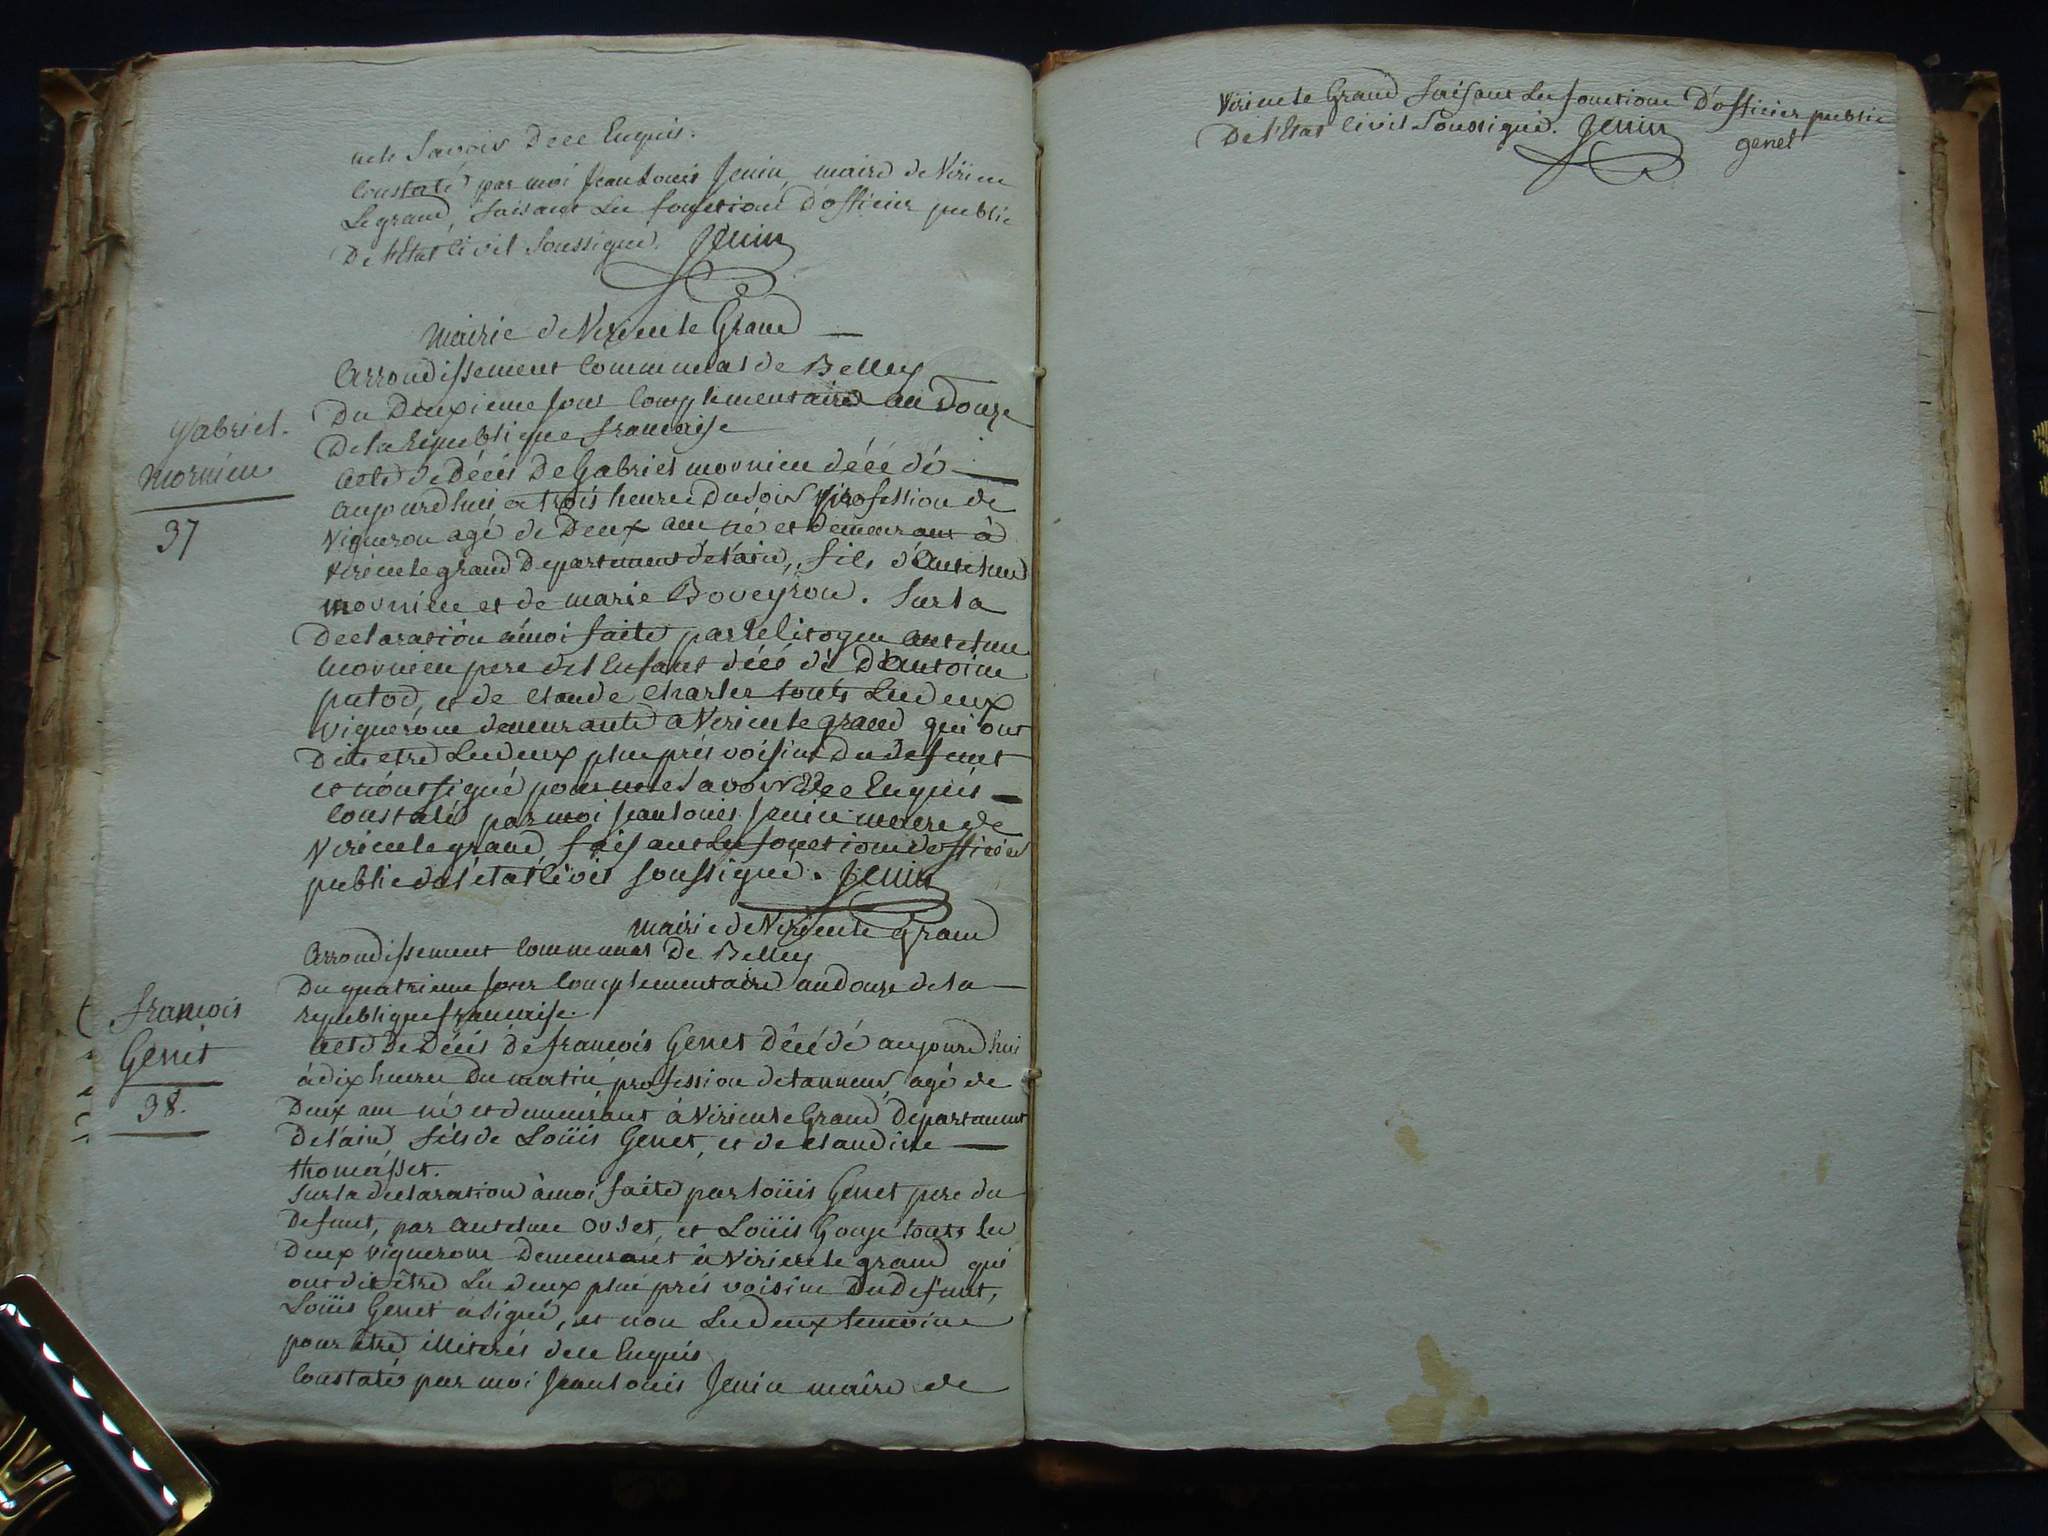 nele Savoir Dece Enquis.
Constaté par moi Jean Louis Jenin, maire de Virieu
Legrand, faisant Les fonctions d'officier public
De l'Etat Civil Soussigné. Jenin
Mairie de Virieu le Grand
Arrondissement Communal de Belley
Du Deuxieme Jour Complementaire an Douze
De la République francaise
Gabriel
Mornieu
37
Acte de Décés De Gabriel mornieu décédé
aujourdhui a trois heures Du soir profession de
Vigneron agé de Deux ans né et demeurant à
virieu le grand Departement de l'ain, fils d'Antelme
mornieu et de marie Boveyron. Sur la
Declaration à moi faite par le Citoyen antelme
mornieu pere de l'Enfant décédé D'Antoine
putod, et de Claude Charles touts Les deux
vignerons demeurants a Virieu le grand qui ont
Dit etre Les deux plus prés voisins Du defunt
et n'ont signé pour ne le Savoir Dee Enquis
Constaté par moi Jean louis Jenin maire de
Virieu le grand faisant Les fonctions d'officier
public de l'état Civil soussigné. Jenin
Mairie de Virieu le grand
Arrondissement Communal De Belley
Du quatrieme Jour Complementaire an Douze de la
republique francaise.
francois
Genet
38.
Acte De Décés de francois Genet Décédé aujourdhui
à dix heures Du matin profession de tanneur, agé de
Deux ans né et demeurant à Virieu le Grand, Departement
De l'ain fils de Loüis Genet, et de Claudine
thomasset.
Sur la declaration à moi faite par loüis Genet pere du
Defunt, par Antelme ovset, et Loüis Gouje touts les
Deux vignerons Demeurant à Virieu le grand qui
ont dit être Les deux plus prés voisins Du Defunt,
Loüis Genet a signé, et non Les deux temoins
pour être illiterés dece Enquis
Constaté par moi Jean Louis Jenin maire de
Virieu le Grand faisant Les fonctions D'officier public
De l'Etat Civil Soussigné. Jenin
genet